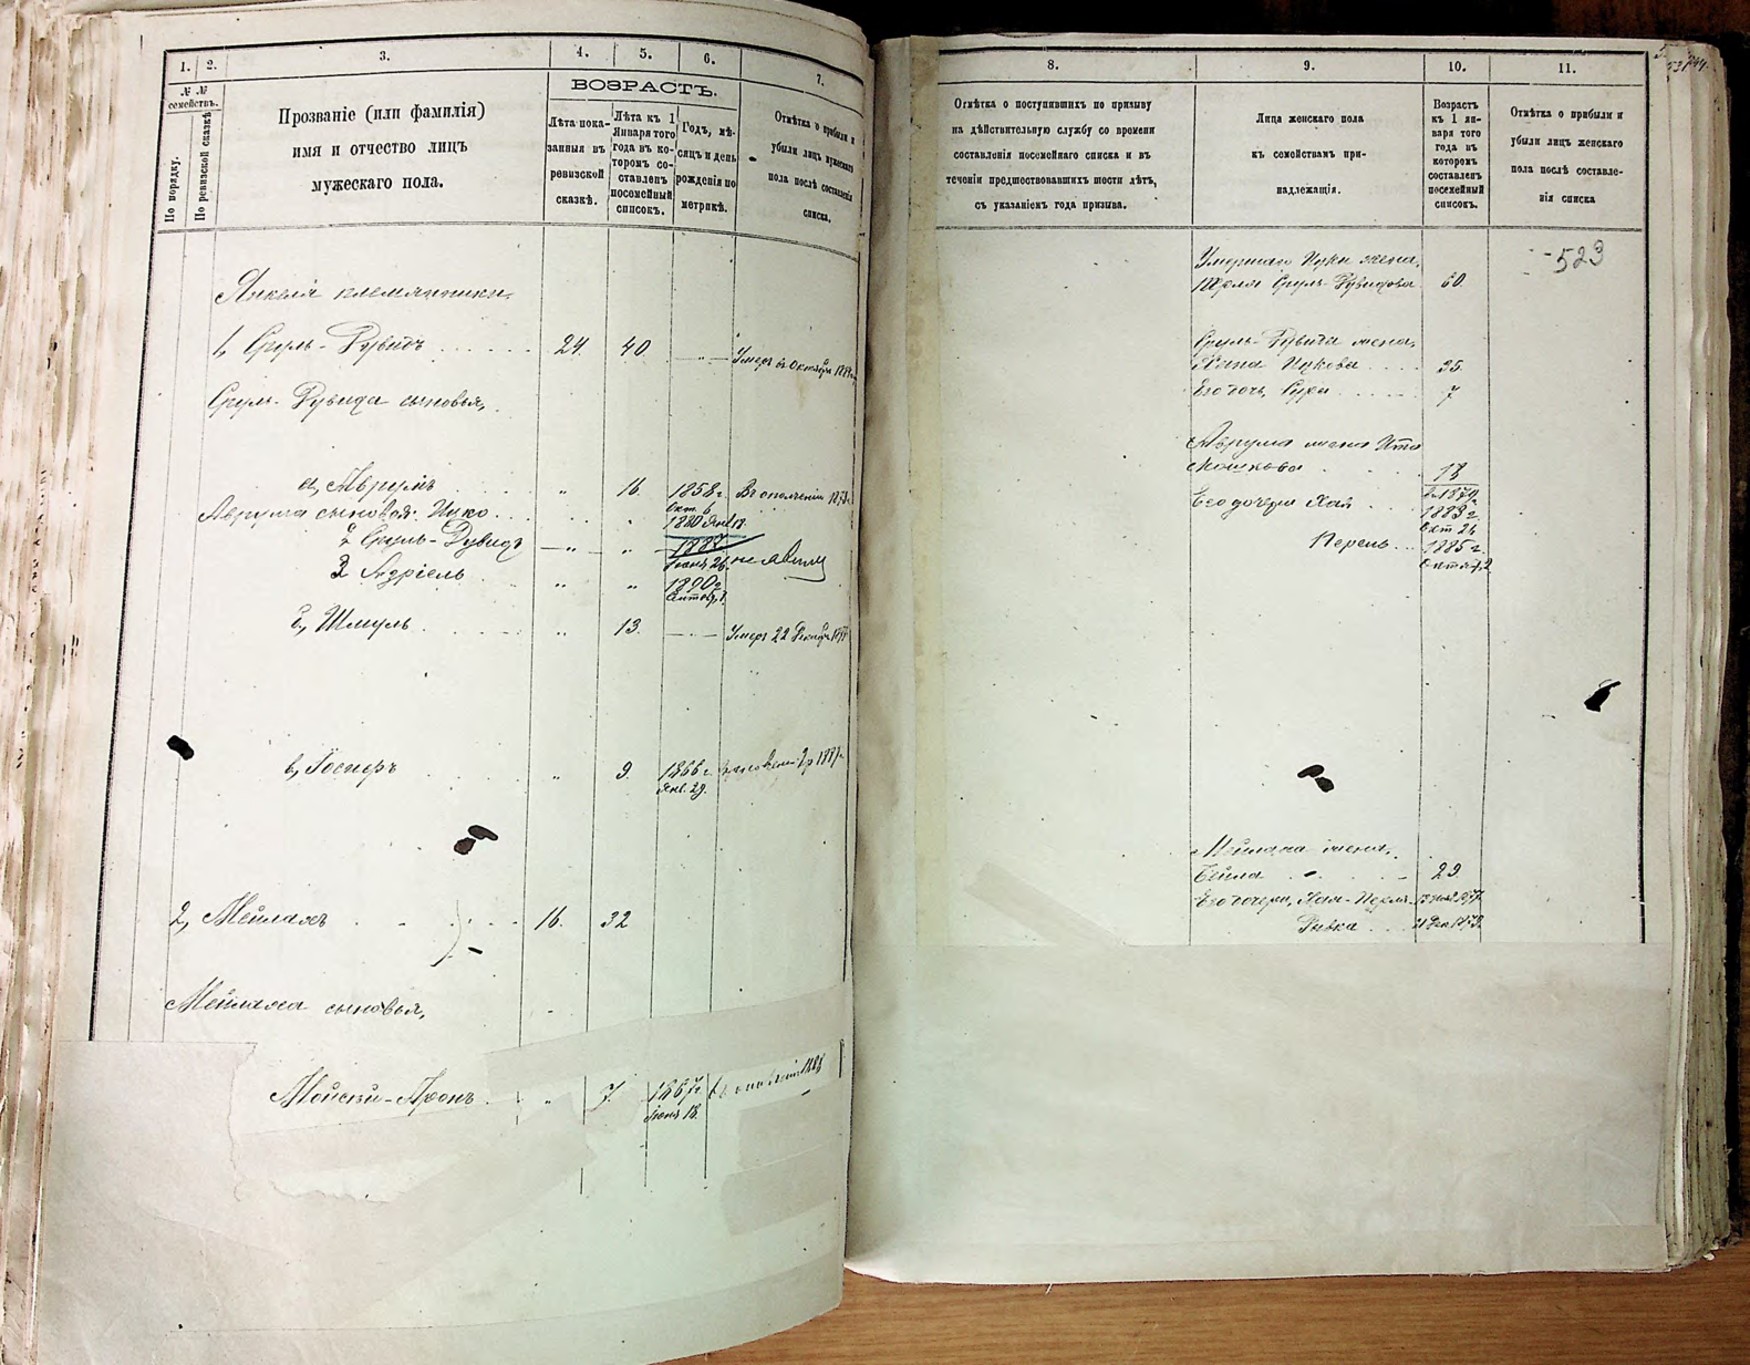 1. 2. 3. 4. 5. 6. 7.
№ №
семействъ.
По порядку.
По ревизской сказкѣ
Прозваніе (или фамилія)
имя и отчество лицъ
мужескаго пола.
ВОЗРАСТЪ.
Лѣта пока-
занныя въ
ревизской
сказкѣ.
Лѣта къ 1
Января того
года въ ко-
торомъ со-
ставленъ
посемейный
списокъ.
Годъ, мѣ-
сяцъ и день
рожденія по
метрикѣ.
Отмѣтка о прибыли и
убыли лицъ мужескаго
пола послѣ составленія
списка.
Янкеля племянники,
1, Сруль-Дувидъ 24. 40 Умеръ въ Октябрѣ
Сруль-Дувида сыновья,
а, Аврумъ " 16. 1858 г. Въ ополченіи
Окт. 6
Аврума сыновья: Ицко " 1880 Янв. 18.
2 Сруль-Дувидъ " " 1887 не явил
Іюня 26.
3 Азріель " " 1890 г.
б, Шмуль " 13. Умеръ 22 Декабр
в, Іосифъ " 9. 1866 г. 1887 г.
Янв. 29.
2, Мейлахъ 16. 32
Мейлаха сыновья,
Мойсей-Аронъ " 7. 1867 г.
Іюня 18.
8. 9. 10. 11.
Отмѣтка о поступившихъ по призыву
на дѣйствительную службу со времени
составленія посемейнаго списка и въ
теченіи предшествовавшихъ шести лѣтъ,
съ указаніемъ года призыва.
Лица женскаго пола
къ семействамъ при-
надлежащія.
Возрастъ
къ 1 ян-
варя того
года въ
которомъ
составленъ
посемейный
списокъ.
Отмѣтка о прибыли и
убыли лицъ женскаго
пола послѣ составле-
нія списка
523
Умершаго Ицки жена,
Сруль-Дувидова 60.
Сруль-Дувида жена,
Хана Ицкова 35.
Его дочь, Сура 7
Аврума жена Ита
Мошкова 18
1879
Его дочери Хая 1883 г.
Окт 24
Перель 1885 г.
Мейлаха жена,
Бейла 29.
Его дочери, Хая-Перля
Ривка